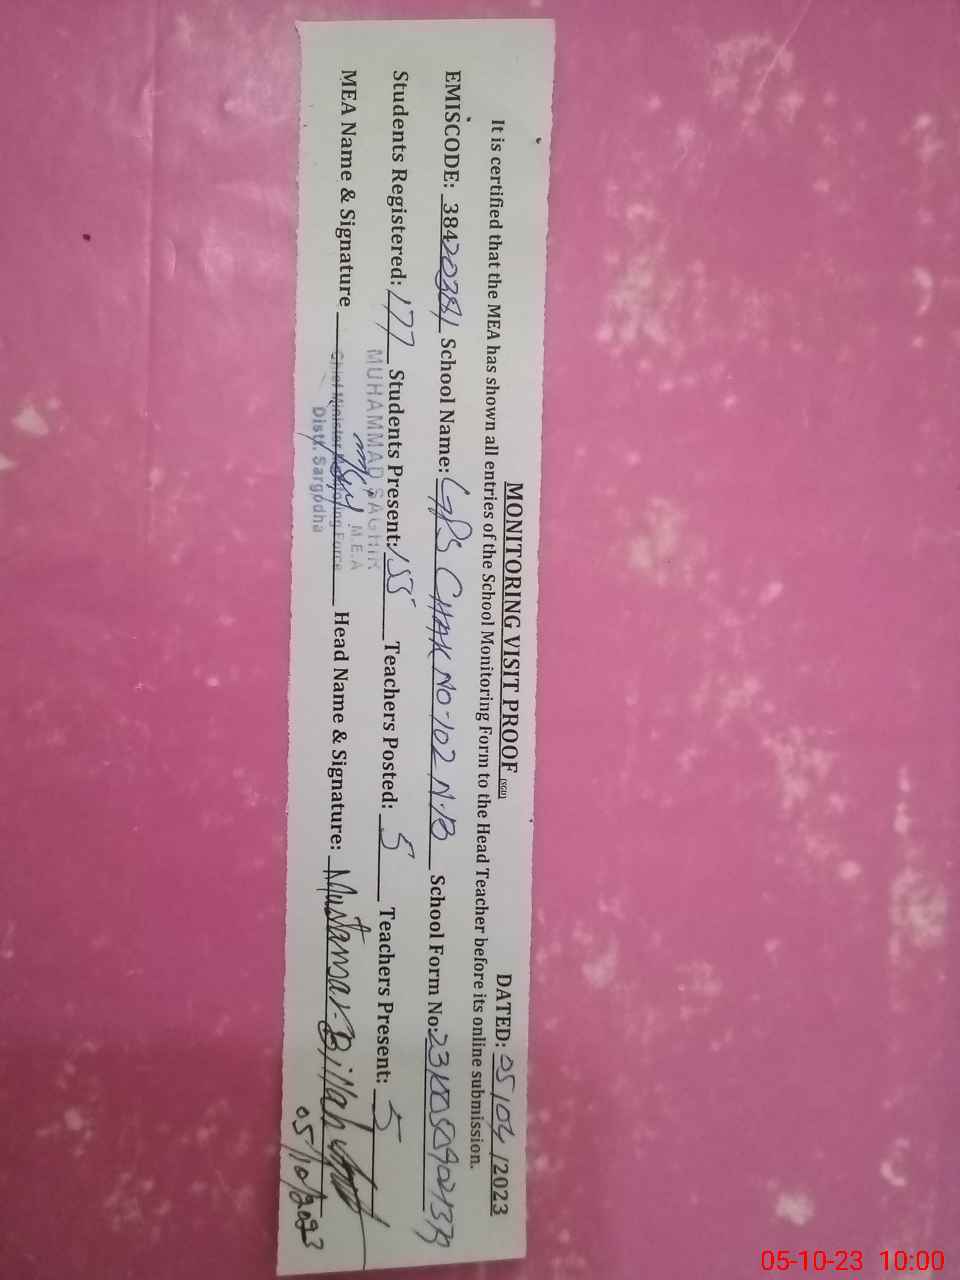 MONITORING VISIT PROOF (SGD) DATED: 05/04/2023
It is certified that the MEA has shown all entries of the School Monitoring Form to the Head Teacher before its online submission.
EMISCODE: 38420381 School Name: GPS CHAK NO-102 N.B School Form No:
Students Registered: 177 Students Present: 155 Teachers Posted: 5 Teachers Present: 5
MUHAMMAD SAGHIR
M.E.A
MEA Name & Signature Head Name & Signature: Mustansar-Billah
Chief Minister Monitoring Force
Distt. Sargodha
05/10/2023
05-10-23 10:00